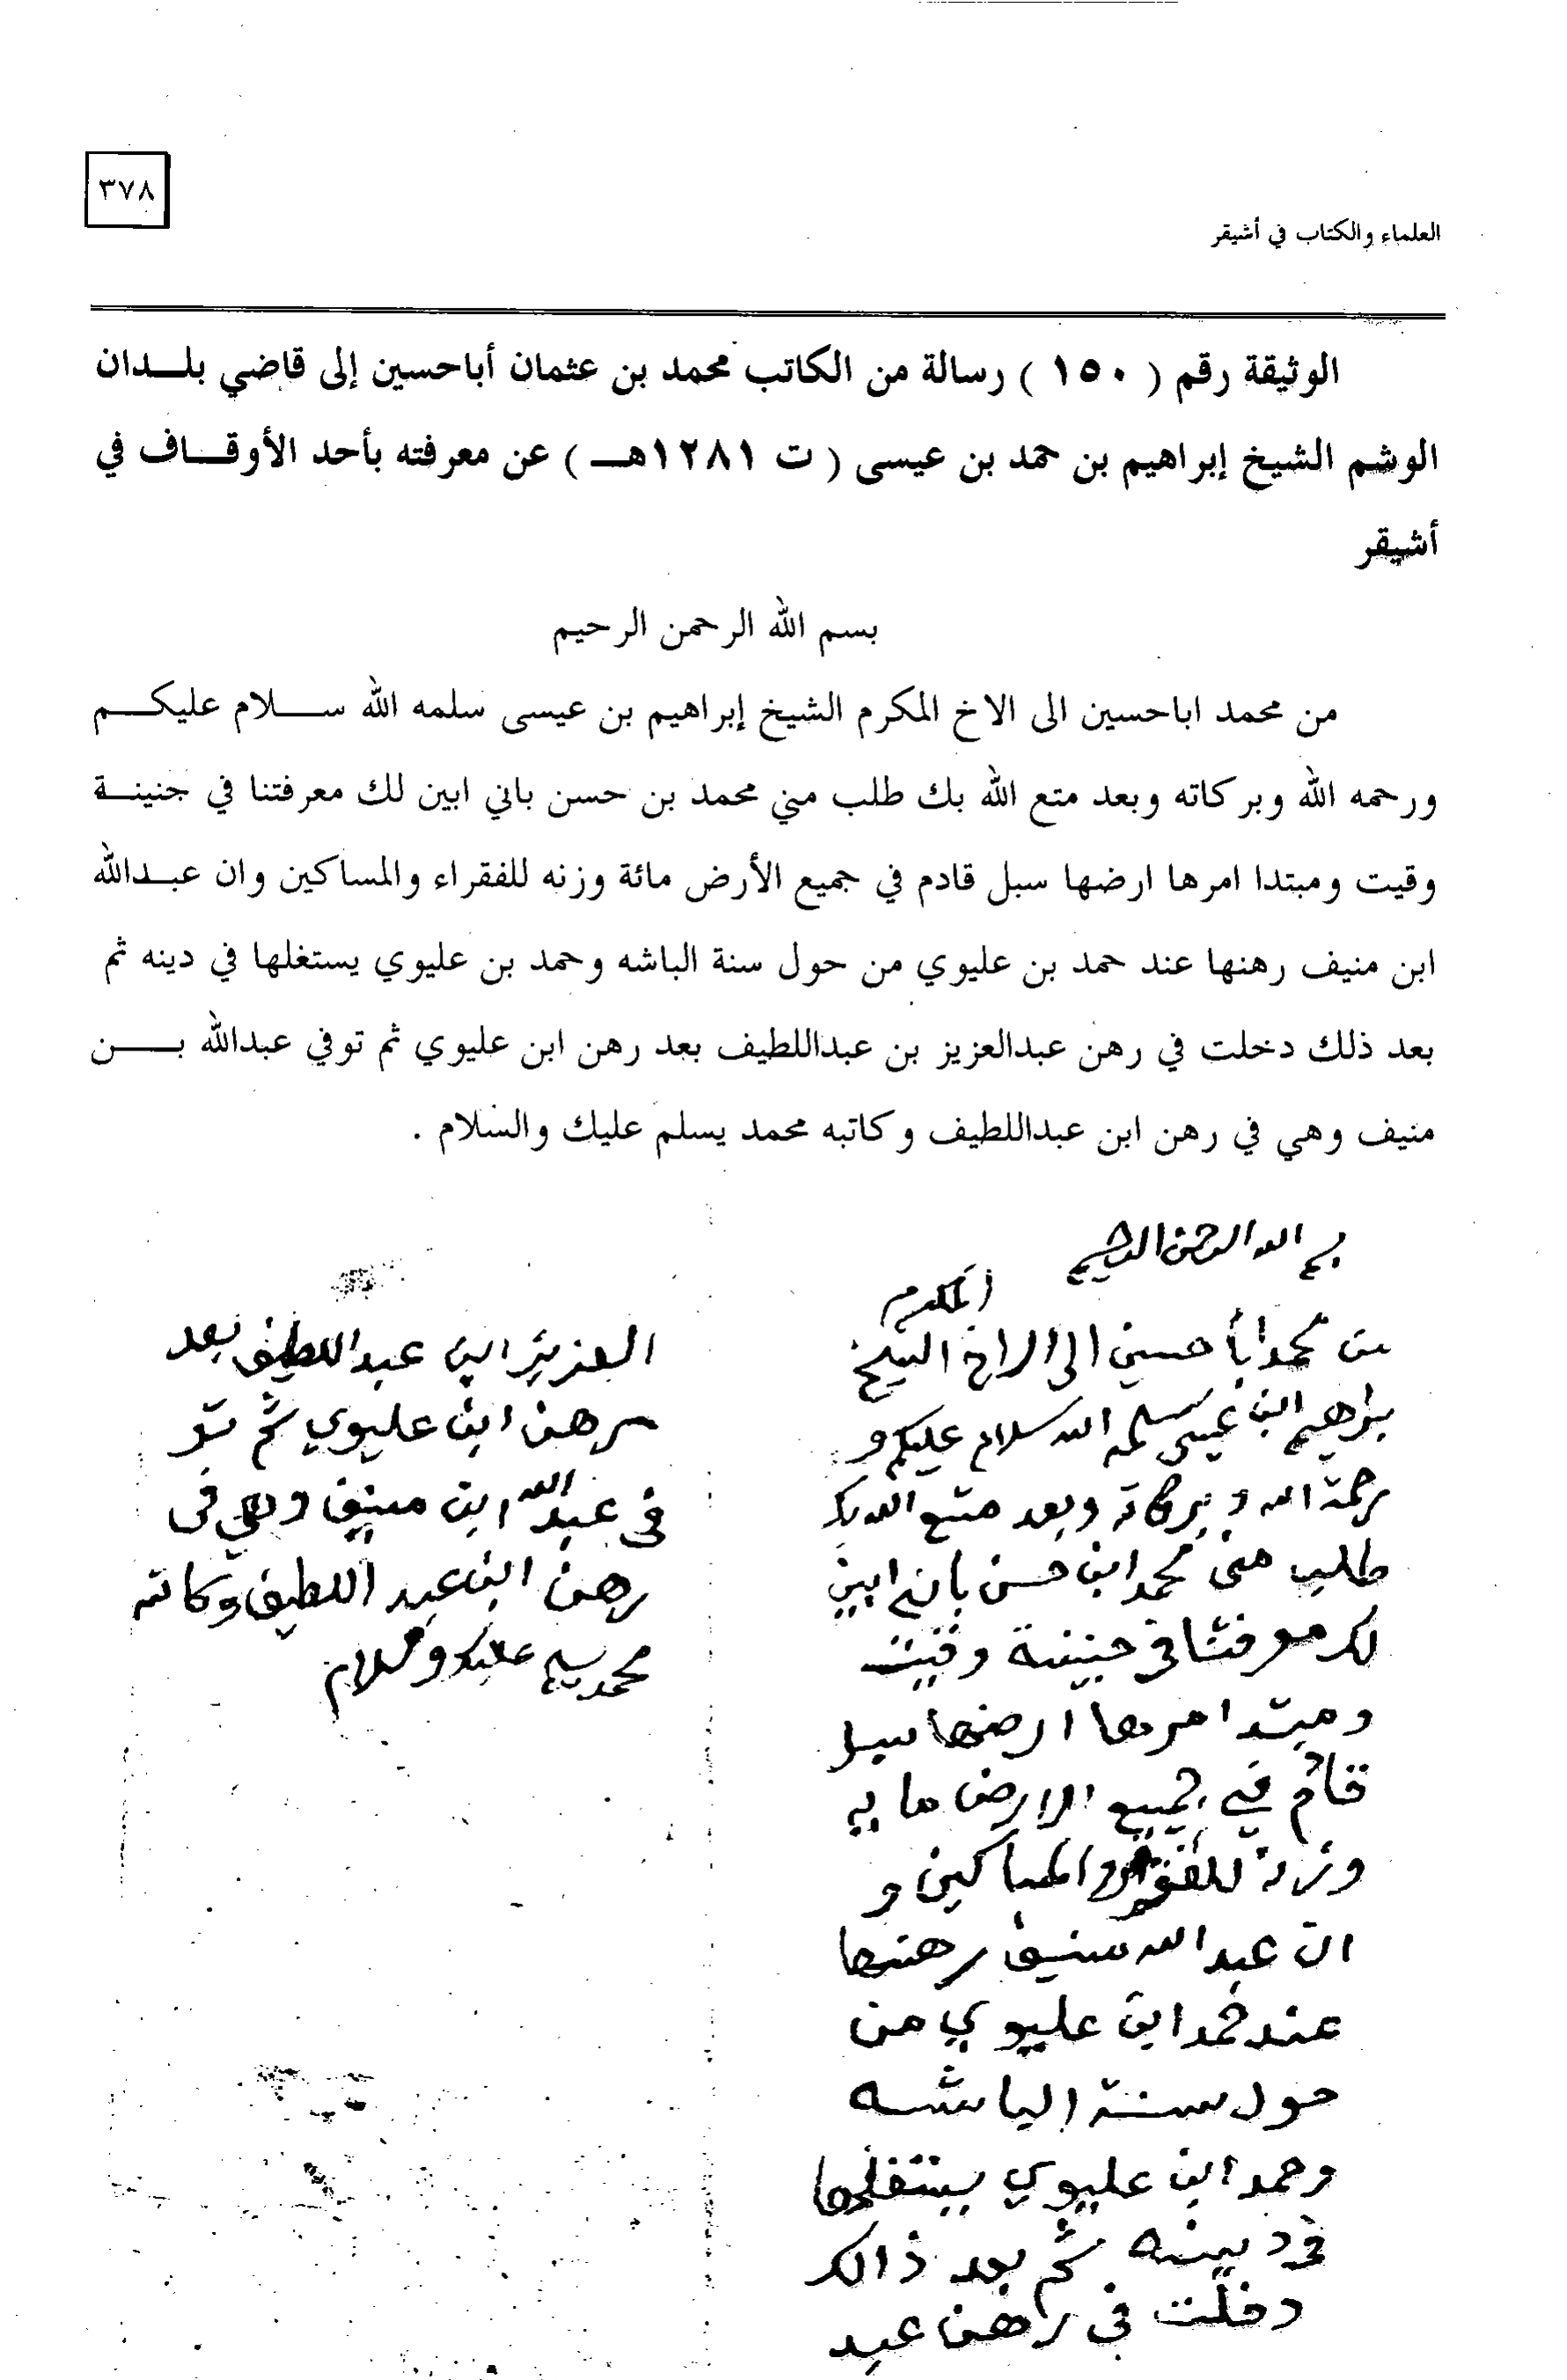 ٣٧٨
العلماء والكتاب في أشيقر
الوثيقة رقم ( ١٥٠ ) رسالة من الكاتب محمد بن عثمان أباحسين إلى قاضي بلـــدان
الوشم الشيخ إبراهيم بن حمد بن عيسى ( ت ١٢٨١هـــ ) عن معرفته بأحد الأوقـــاف في
أشيقر
بسم الله الرحمن الرحيم
من محمد اباحسين الى الاخ المكرم الشيخ إبراهيم بن عيسى سلمه الله ســـلام عليكـــم
ورحمه الله وبركاته وبعد متع الله بك طلب مني محمد بن حسن باني ابين لك معرفتنا في جنينـــة
وقيت ومبتدا امرها ارضها سبل قادم في جميع الأرض مائة وزنه للفقراء والمساكين وان عبـدالله
ابن منيف رهنها عند حمد بن عليوي من حول سنة الباشه وحمد بن عليوي يستغلها في دينه ثم
بعد ذلك دخلت في رهن عبدالعزيز بن عبداللطيف بعد رهن ابن عليوي ثم توفي عبدالله بـــــن
منيف وهي في رهن ابن عبداللطيف وكاتبه محمد يسلم عليك والسلام .
بسم الله الرحمن الرحيم
المكرم
من محمد أبا حسين الى الاخ الشيخ
براهيم ابن عيسى سلمه الله سلام عليكم و
رحمة الله وبركاته وبعد متع الله بك
طلب مني محمد ابن حسن باني ابين
لك معرفتنا في جنينة وقيت
ومبتدا امرها ارضها سبل
قادم في جميع الارض مايه
وزنة للفقراء والمساكين و
ان عبد الله منيف رهنها
عند حمد ابن عليوي من
حول سنة الباشه
وحمد ابن عليوي يستغلها
في دينه ثم بعد ذالك
دخلت في رهن عبد
العزيز ابن عبد اللطيف بعد
رهن ابن عليوي ثم تو
في عبد الله ابن منيف وهي في
رهن ابن عبد اللطيف وكاتبه
محمد يسلم عليك وسلام